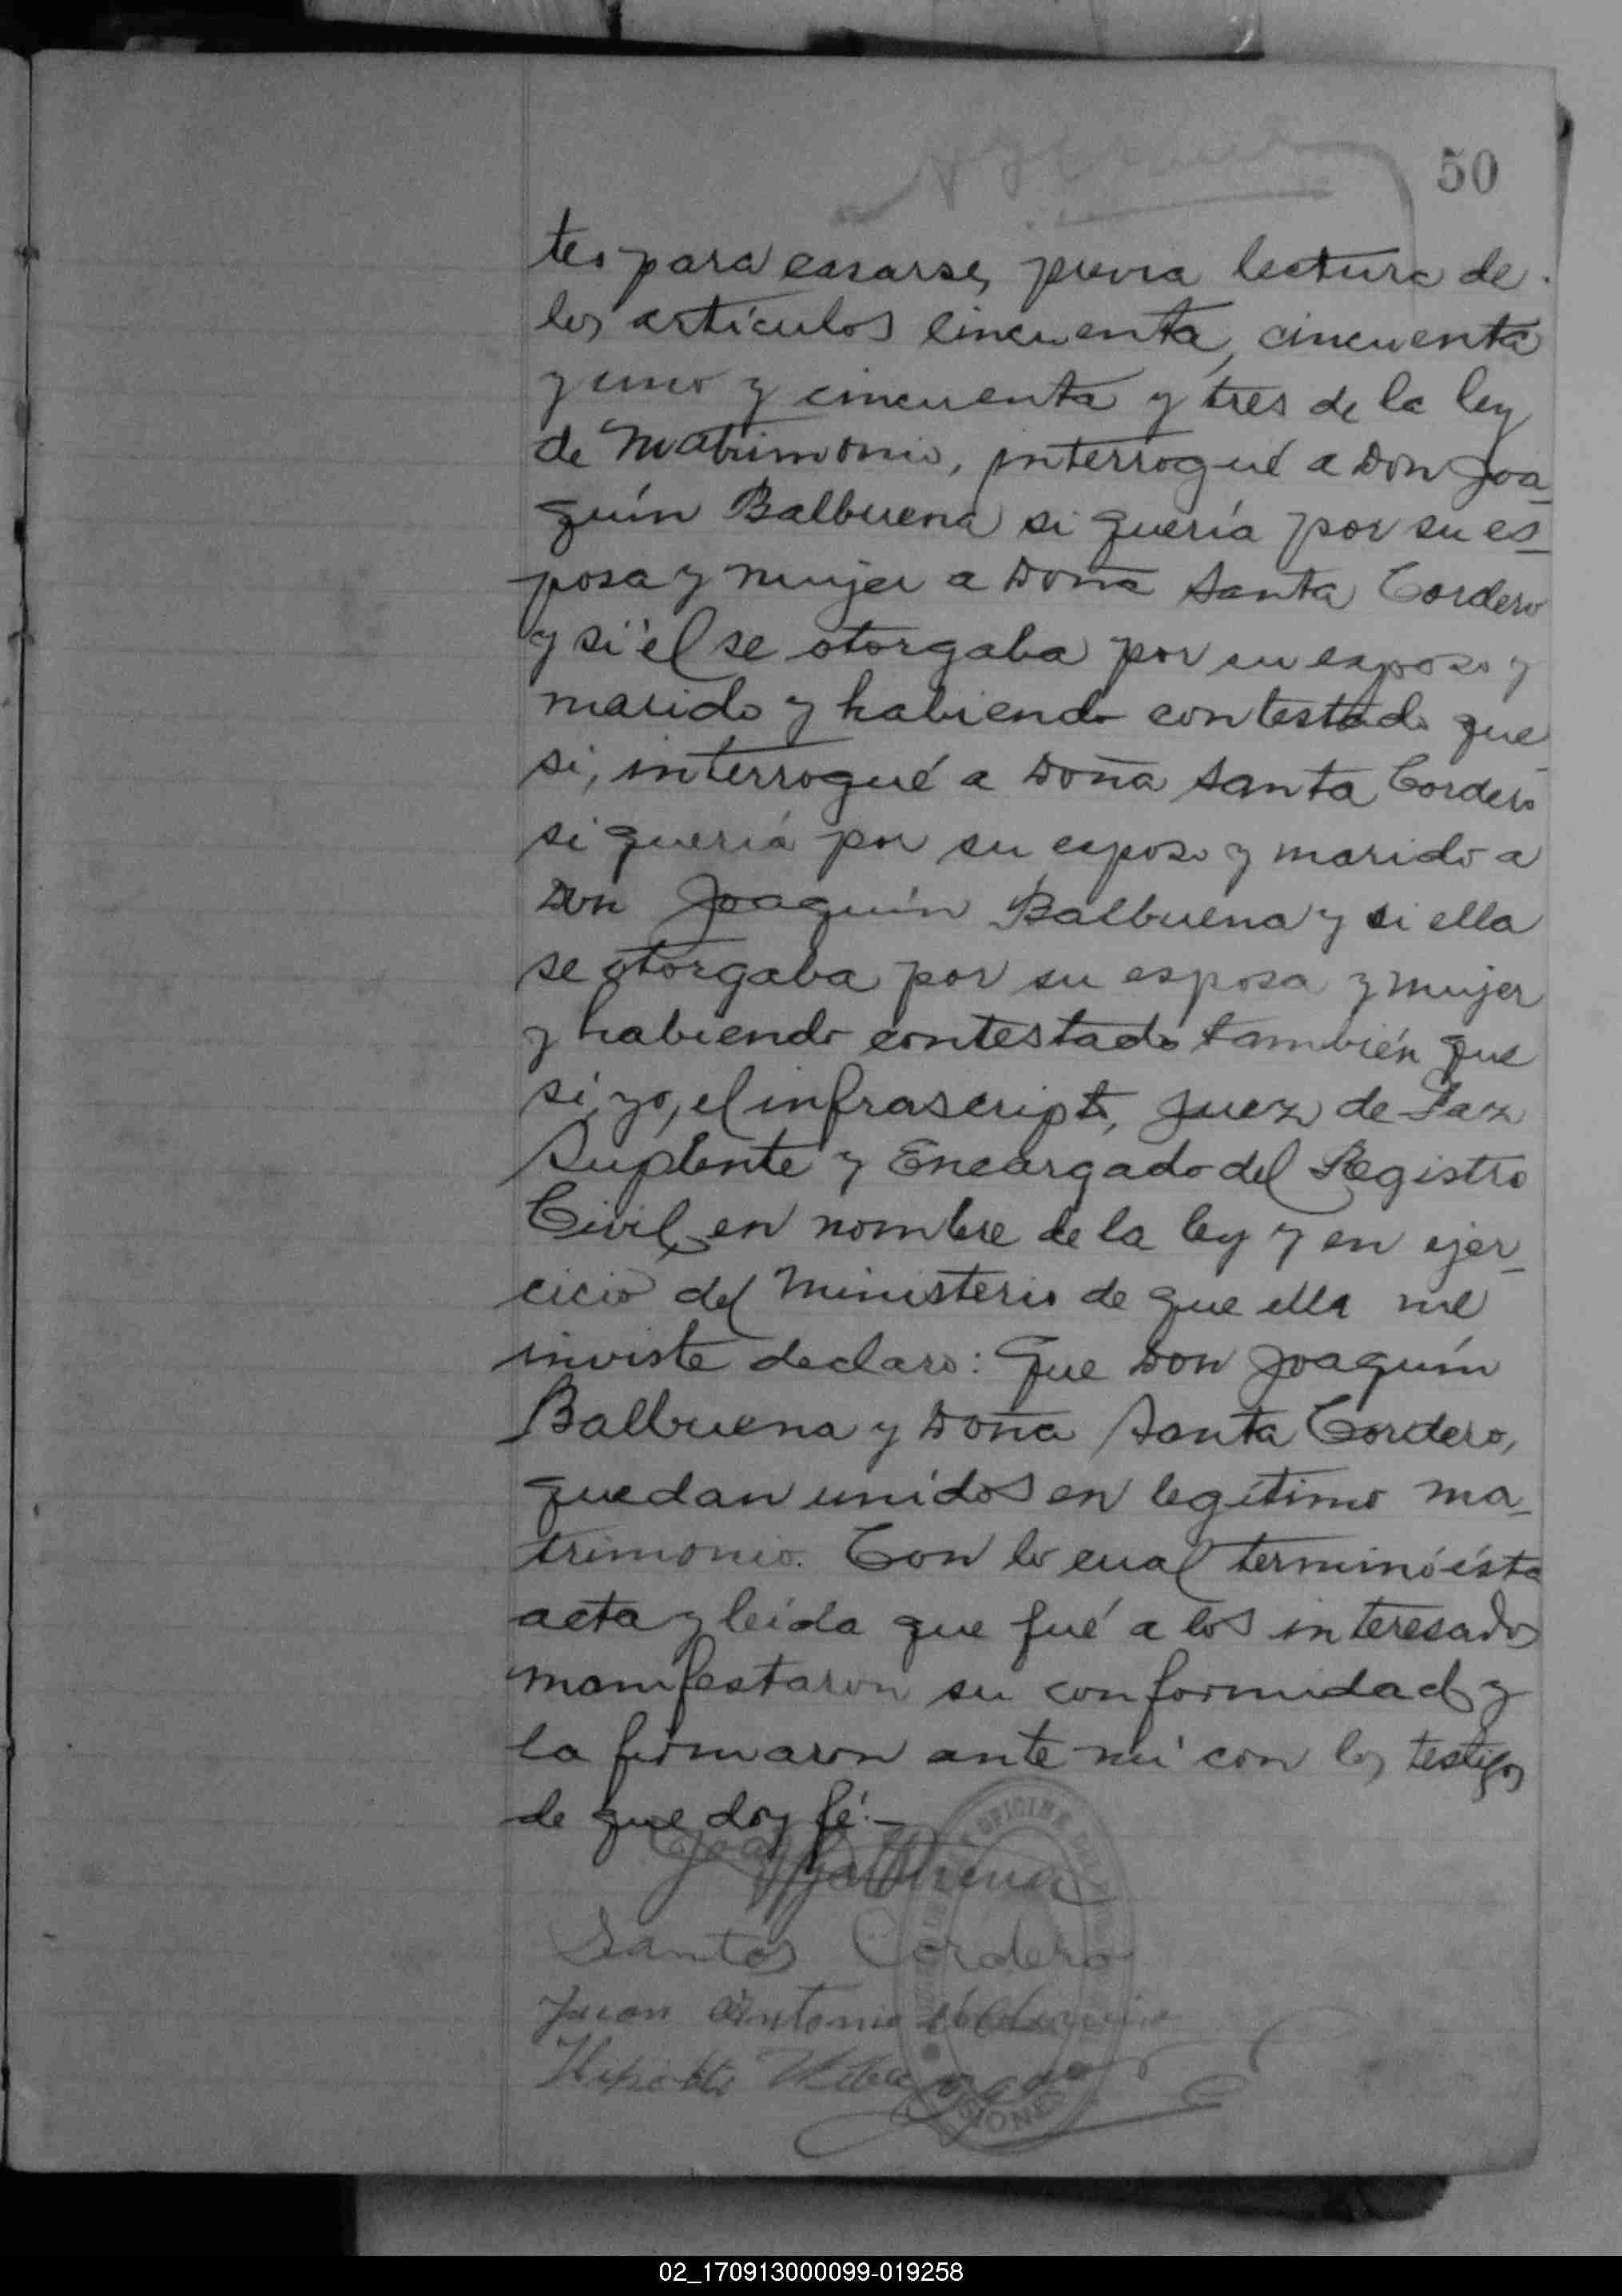 50
tes para casarse, previa lectura de
los artículos cincuenta, cincuenta
y uno y cincuenta y tres de la ley
de Matrimonio, interrogué a Don Joa-
quín Balbuena si quería por su es-
posa y mujer a Doña Santa Cordero
y si él se otorgaba por su esposo y
marido y habiendo contestado que
si, interrogué a Doña Santa Cordero
si quería por su esposo y marido a
Don Joaquín Balbuena y si ella
se otorgaba por su esposa y mujer
y habiendo contestado también que
sí, yo, el infrascripto, Juez de Paz
Suplente y Encargado del Registro
Civil en nombre de la ley y en ejer-
cicio del Ministerio de que ella me
inviste declaro: Que Don Joaquín
Balbuena y Doña Santa Cordero,
quedan unidos en legítimo ma-
trimonio. Con lo cual terminó ésta
acta y leída que fué a los interesados
manifestaron su conformidad y
la firmaron ante mí con los testigos
de que doy fé.-
Balbuena
Santos Cordero
Juan Antonio
Hipolito
OFICINA
MISIONES
02_170913000099-019258